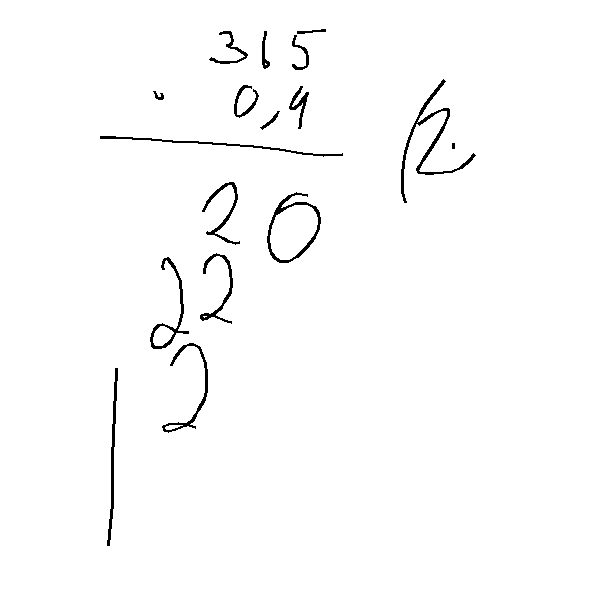 315
· 0,4
20
22
2